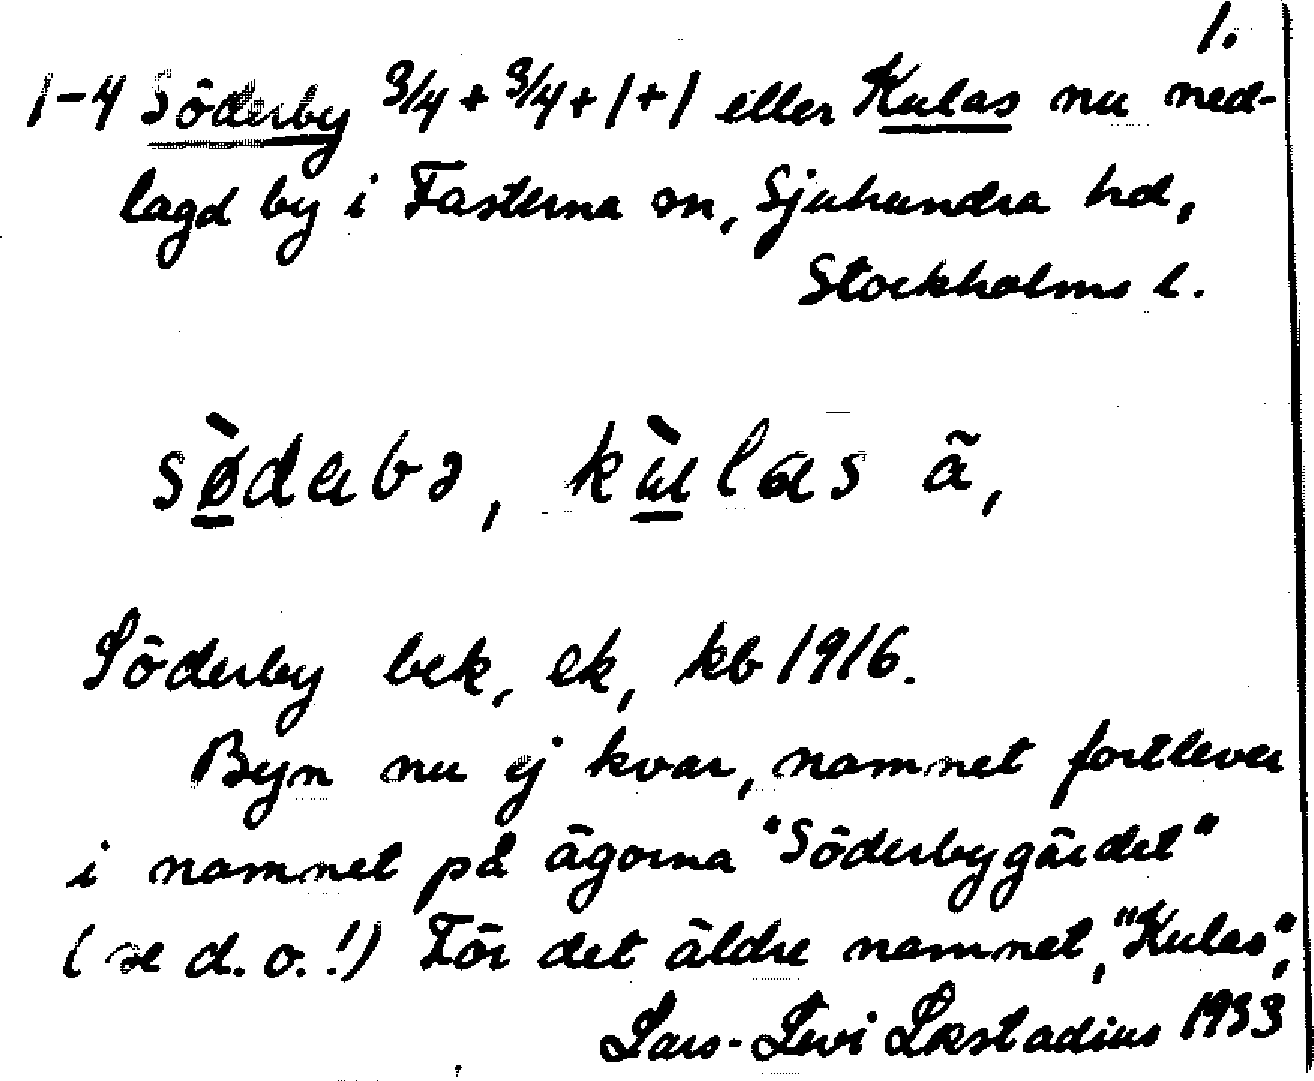 1.
1-4 Söderby 3/4 + 3/4 + 1 + 1 eller Kulas nu ned-
lagd by i Fasterna sn, Sjuhundra hd,
Stockholms l.
sø̀dabə, kùlas ã,
Söderby bek, ek, kb 1916.
Byn nu ej kvar, namnet fortlever
i namnet på ägorna "Söderbygärdet"
(se d. o.!) För det äldre namnet, "Kulas",
Lars-Levi Læstadius 1933